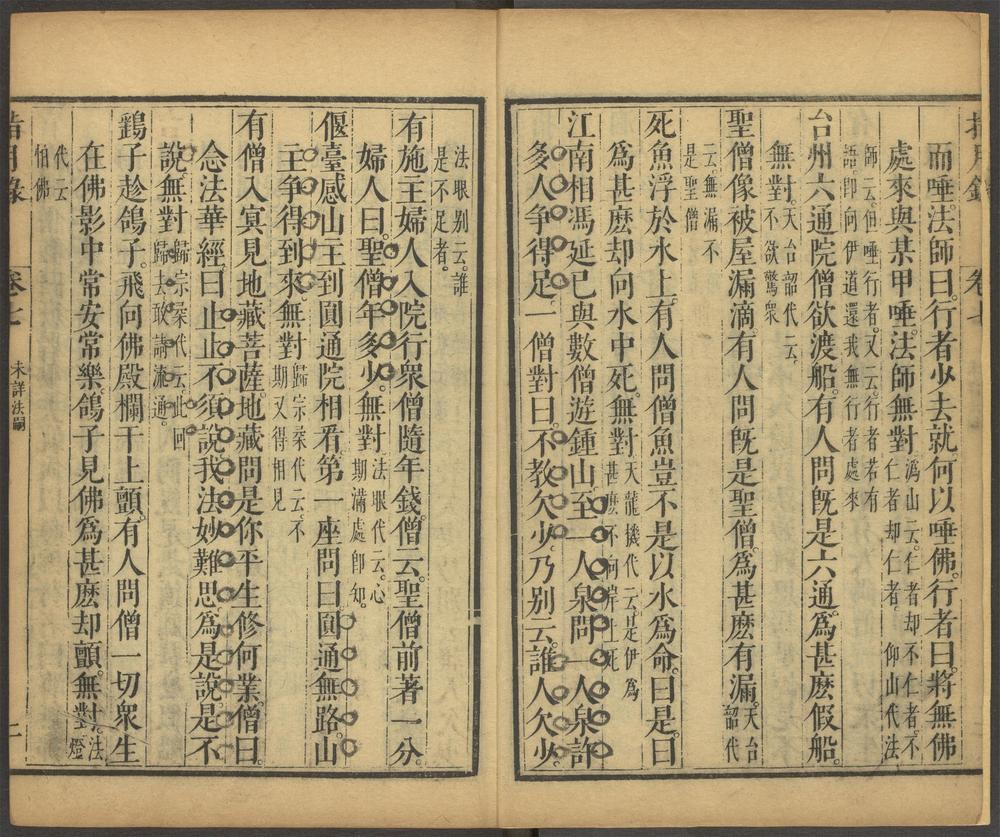 而唾。法師曰。行者少去就何以唾佛。行者曰。將無佛
處來與某甲唾。法師無對。溈山云。仁者却不仁者。不仁者却仁者。仰山代法
師云。但唾行者。又云。行者若有語。即向伊道還我無行者處來
台州六通院僧欲渡船。有人問旣是六通。爲甚麽假船。
無對。天台韶代云。不欲驚衆
聖僧像被屋漏滴。有人問旣是聖僧。爲甚麽有漏。天台韶代
云。無漏不是聖僧
死魚浮於水上。有人問僧魚豈不是以水爲命。曰是。曰
爲甚麽却向水中死。無對。天龍機代云。是伊爲甚麽不向岸上死
江南相馮延已與數僧遊鍾山。至一人泉。問一人泉許
多人爭得足。一僧對曰。不教欠少。乃別云。誰人欠少。
法眼別云。誰是不足者。
有施主婦人入院行衆僧隨年錢。僧云。聖僧前著一分。
婦人曰。聖僧年多少。無對。法眼代云。心期滿處即知。
偃臺感山主到圓通院相看。第一座問曰。圓通無路。山
主爭得到來。無對。歸宗柔代云。不期又得相見
有僧入冥見地藏菩薩。地藏問是你平生修何業。僧曰。
念法華經。曰止止不須說。我法妙難思。爲是說是不
說。無對。歸宗柔代云。此回歸去敢請流通。
鷂子趁鴿子。飛向佛殿欄干上顫。有人問僧一切衆生
在佛影中常安常樂。鴿子見佛爲甚麽却顫。無對。法燈
代云怕佛
指月錄
卷七
未詳法嗣
二